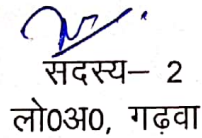 सदस्य– 2
लो0अ0, गढ़वा